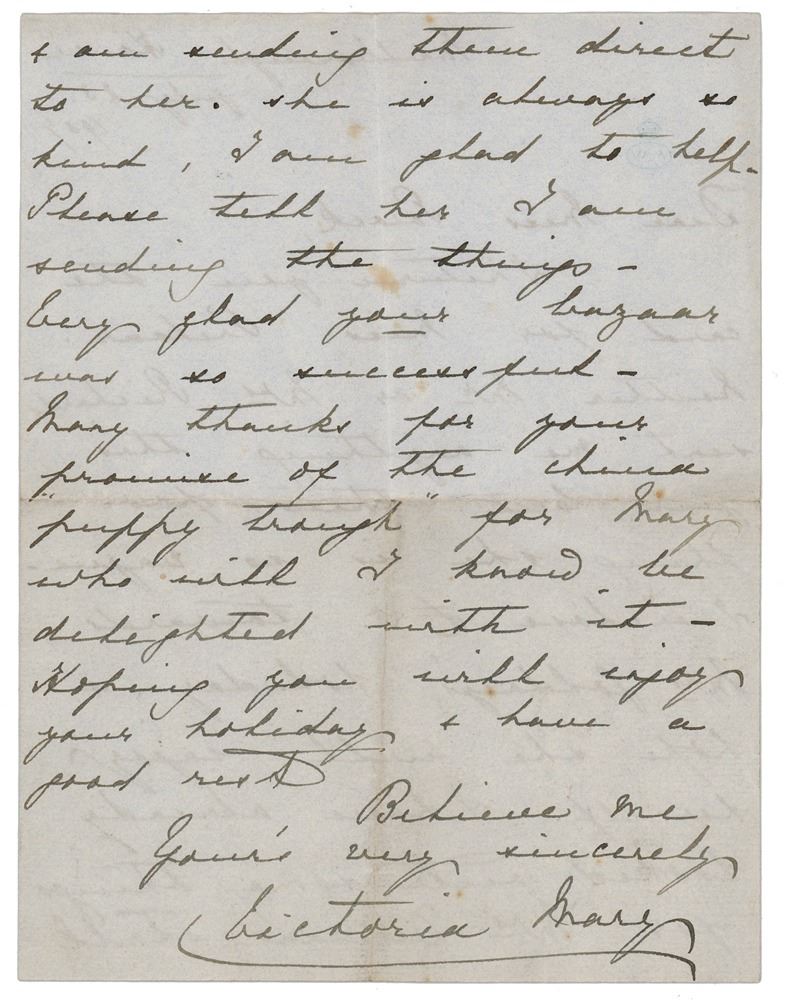 & am sending them direct
to her. she is always so
kind, I am glad to help.
Please tell her I am
sending the things –
Very glad your bazaar
was so successful –
Many thanks for your
promise of the china
"puppy trough" for Mary
who will I know be
delighted with it –
Hoping you will enjoy
your holiday & have a
good rest
Believe me
Your's very sincerely
Victoria Mary